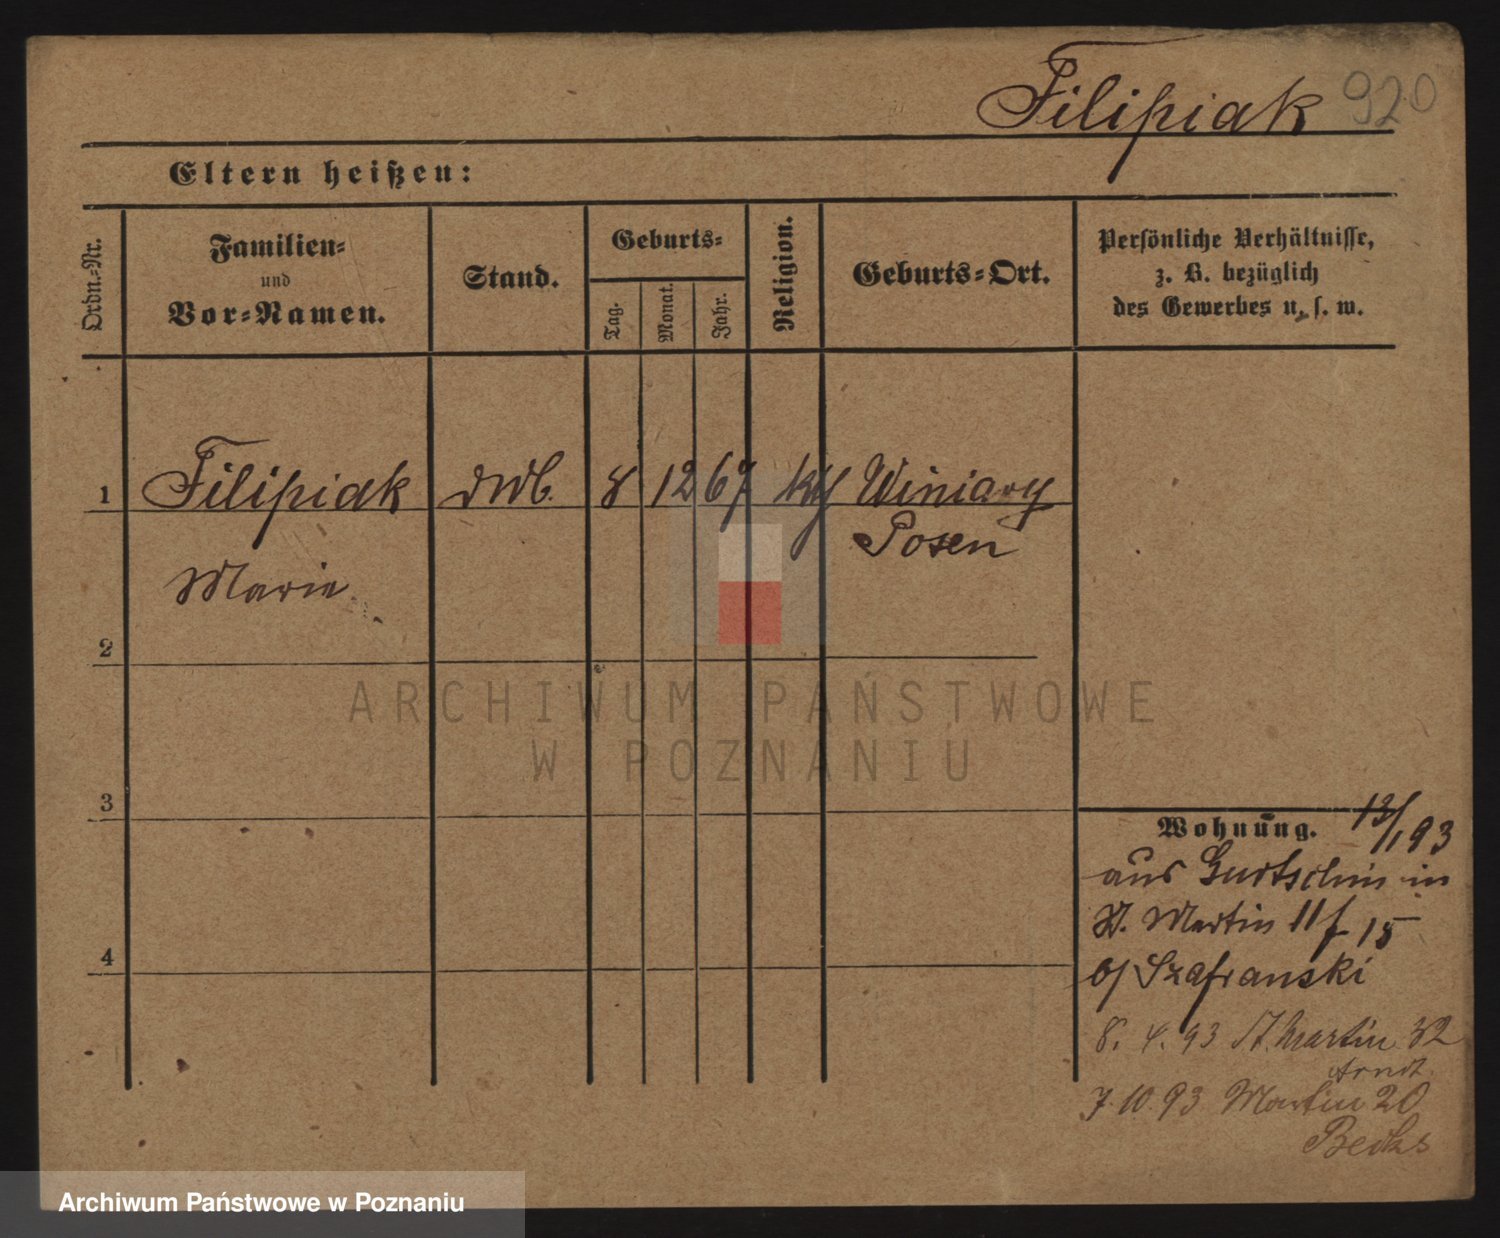 Filipiak 920
Eltern heißen:
Ordn.-Nr.
Familien-
und
Vor-Namen.
Stand.
Geburts-
Tag.
Monat.
Jahr.
Religion.
Geburts-Ort.
Persönliche Verhältnisse,
z. B. bezüglich
des Gewerbes u. s. w.
1 Filipiak 8 12 67 Winiary
Posen
Marie
2
3
4
Wohnung. 13/1 93
aus Gurtschin in
St. Martin 11 15
b/ Szafranski
8. 4. 93 St. Martin 32
Arndt
7. 10. 93 Martin 20
ARCHIWUM PAŃSTWOWE
W POZNANIU
Archiwum Państwowe w Poznaniu